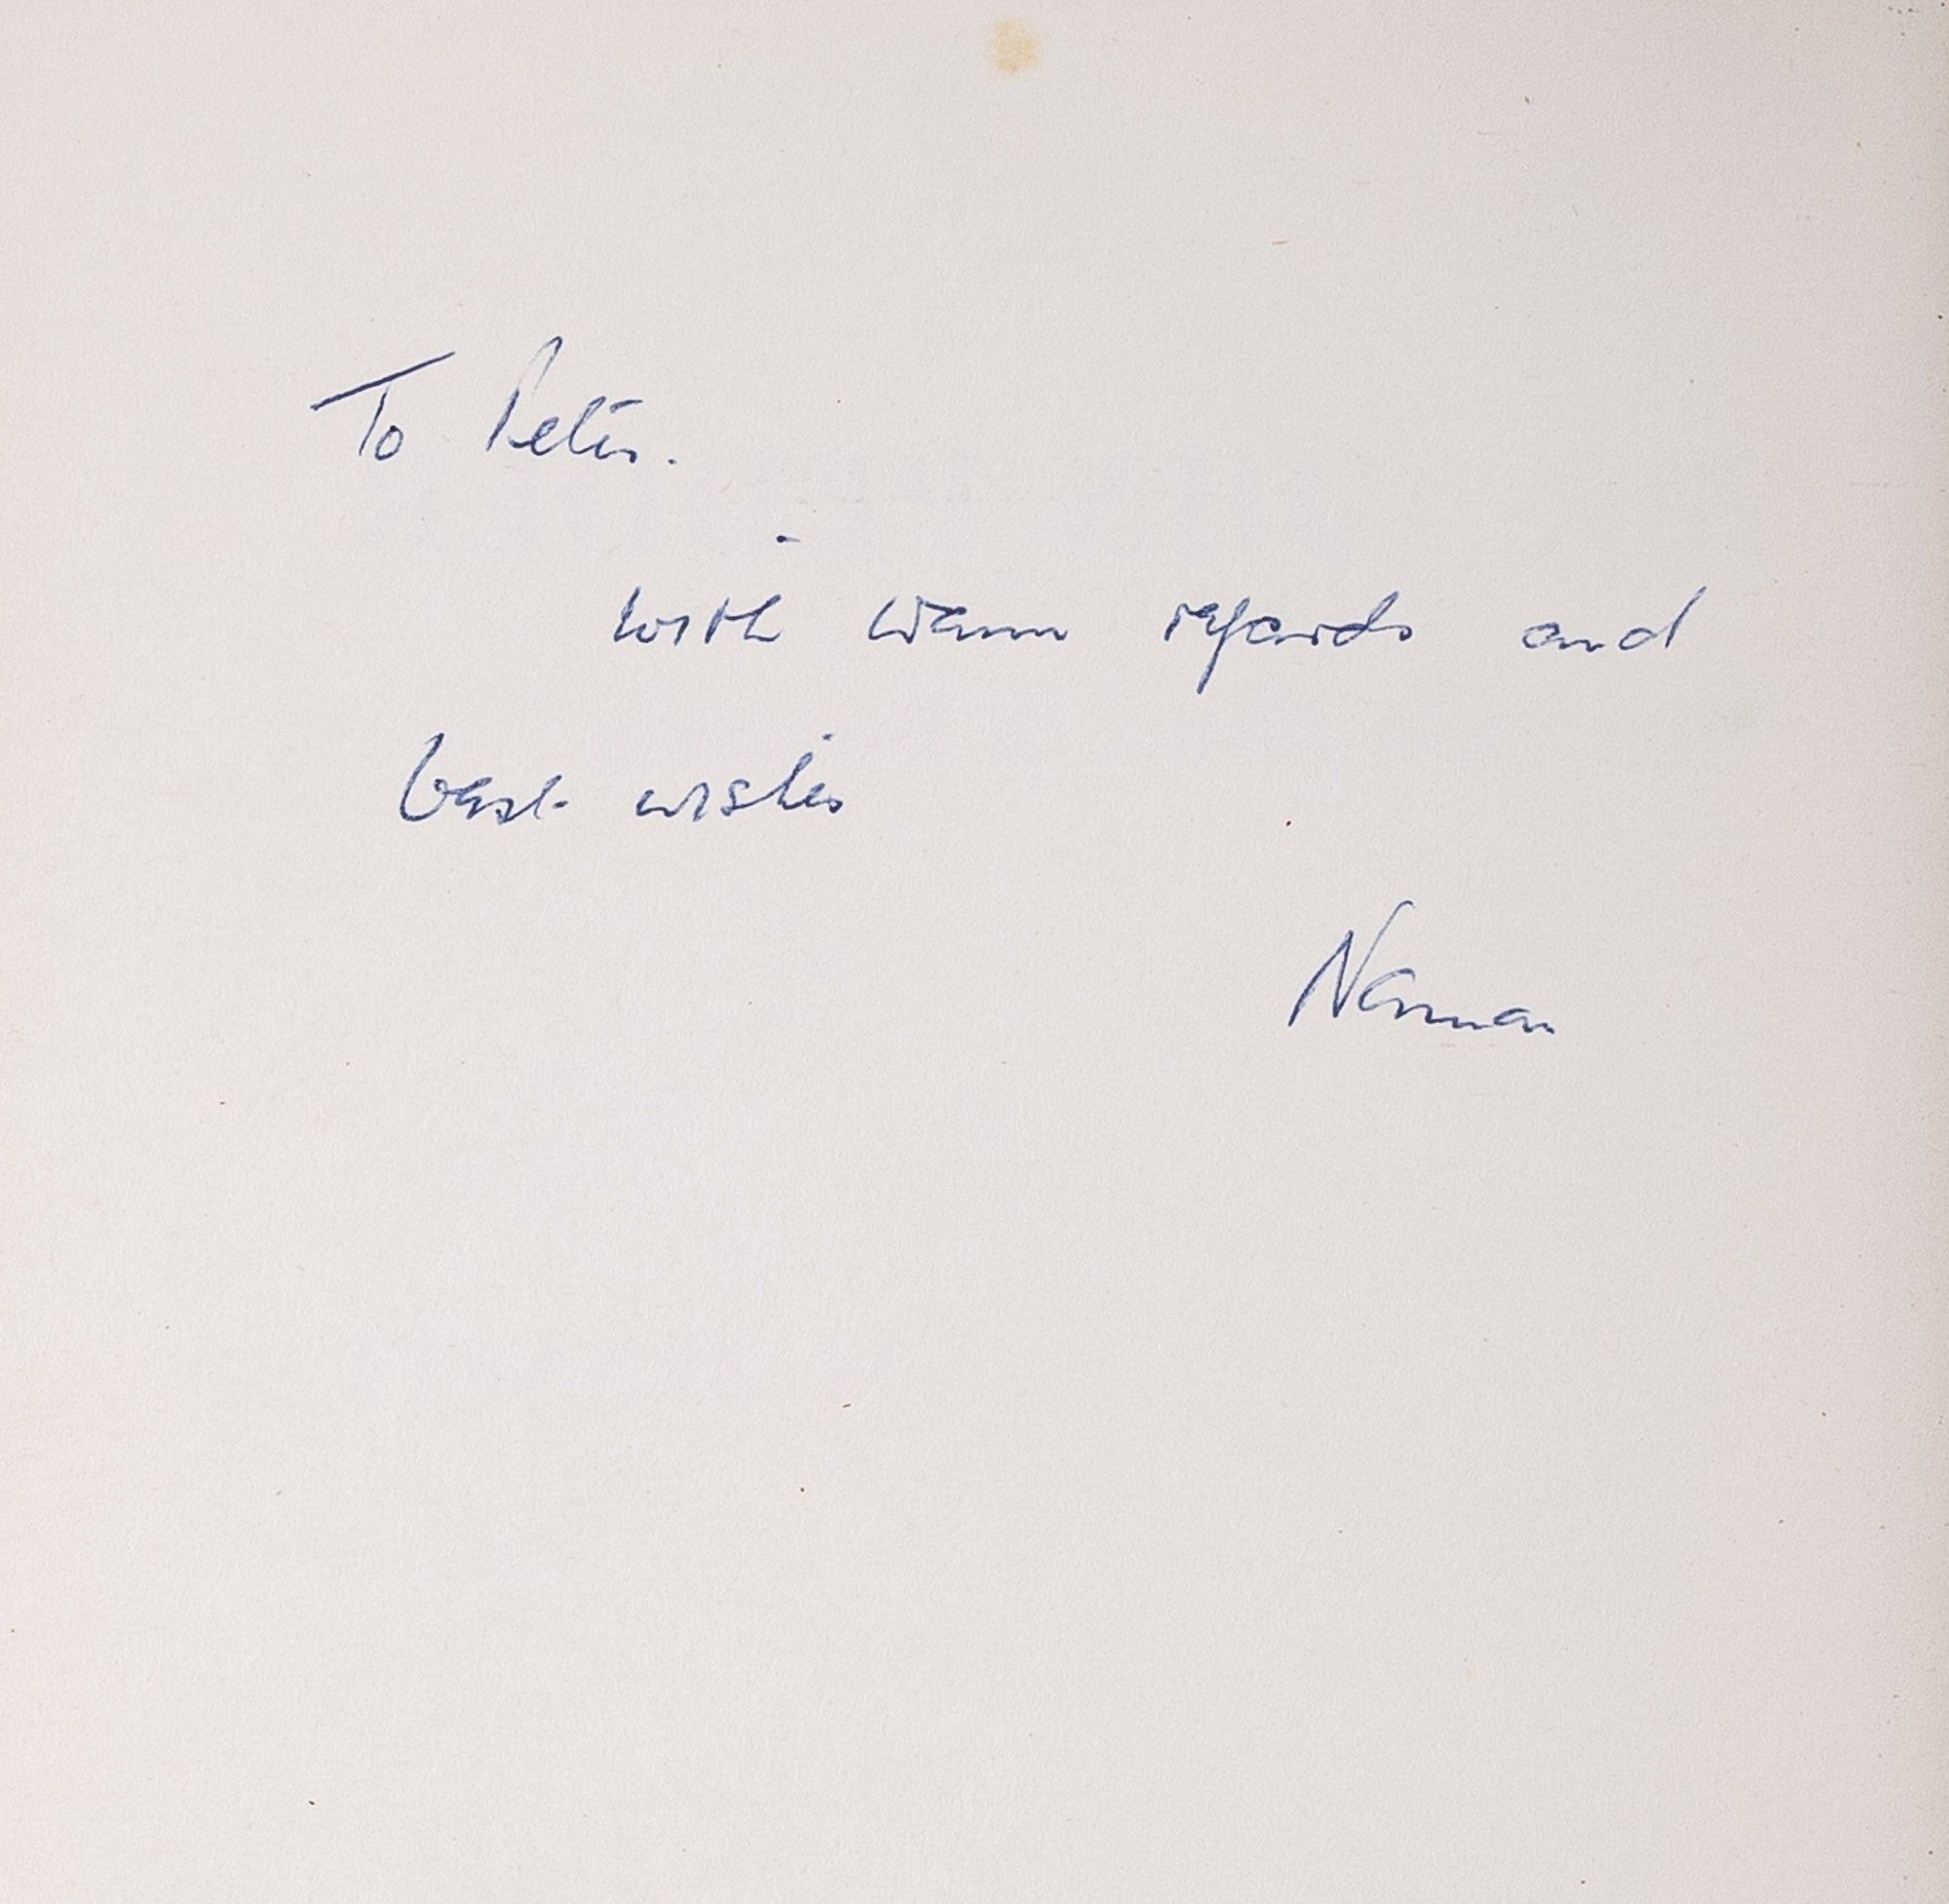 To Peter.
with warm regards and
best wishes
Norman